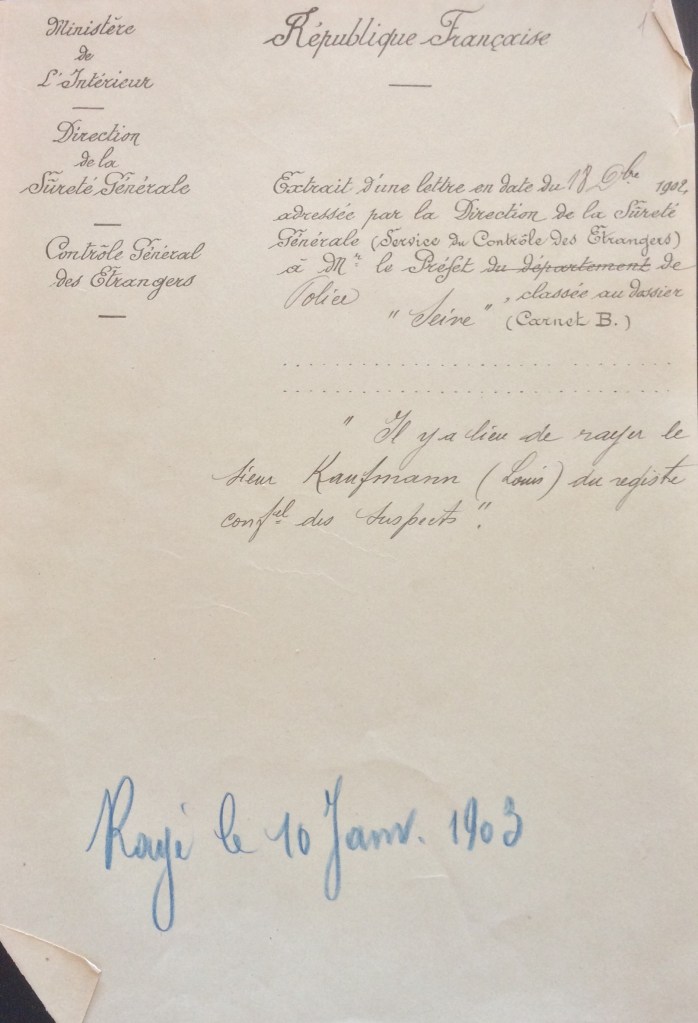 Ministère
de
L'Intérieur
Direction
de la
Sûreté Générale
Contrôle Général
des Etrangers
République Française
1
Extrait d'une lettre en date du 18 Xbre 1902,
adressée par la Direction de la Sûreté
Générale (Service du Contrôle des Etrangers)
à Mr. le Préfet du département de
Police
" Seine ", classée au dossier
(Carnet B.)
" Il y a lieu de rayer le
sieur Kaufmann (Louis) du registre
confiel des suspects ".
Rayé le 10 Janv. 1903